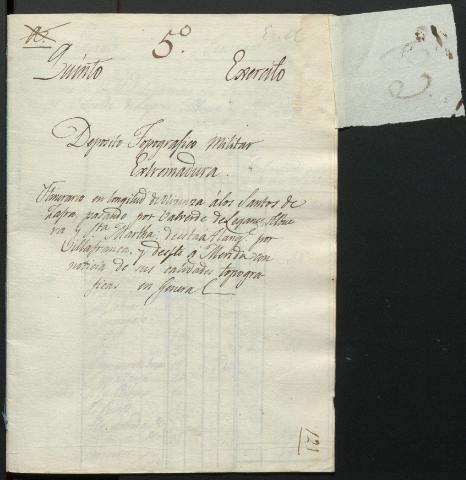 5º
Quinto Exercito
Deposito Topografico Militar
Extremadura.
Ytinerario en longitud de Olivenza á los Santos de
Zafra, pasando por Valverde de Leganes, Albue
ra y Sta Martha; de esta á por
Villafranca, y desde a Merida con
noticia de sus calidades topogra
ficas en General
121